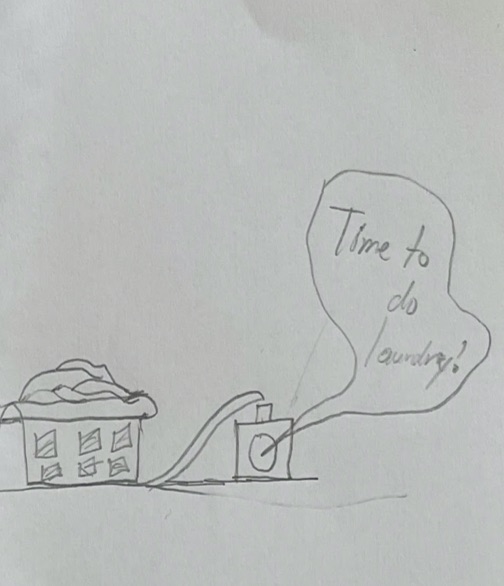 Time to
do
laundry!